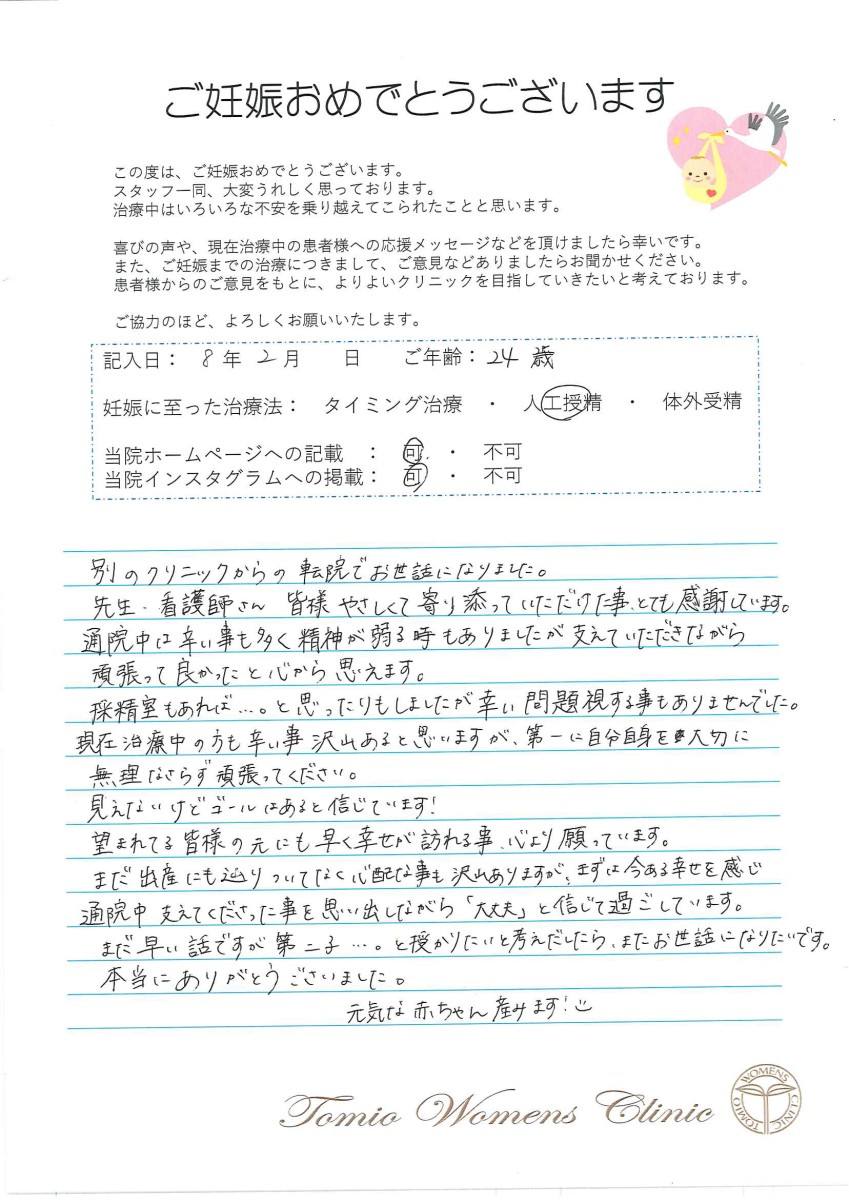 ご妊娠おめでとうございます
この度は、ご妊娠おめでとうございます。
スタッフ一同、大変うれしく思っております。
治療中はいろいろな不安を乗り越えてこられたことと思います。
喜びの声や、現在治療中の患者様への応援メッセージなどを頂けましたら幸いです。
また、ご妊娠までの治療につきまして、ご意見などありましたらお聞かせください。
患者様からのご意見をもとに、よりよいクリニックを目指していきたいと考えております。
ご協力のほど、よろしくお願いいたします。
記入日： 8年 2月 日 ご年齢：24歳
妊娠に至った治療法： タイミング治療 ・ 人工授精 ・ 体外受精
当院ホームページへの記載 ： 可 ・ 不可
当院インスタグラムへの掲載： 可 ・ 不可
別のクリニックからの転院でお世話になりました。
先生・看護師さん 皆様 やさしくて寄り添っていただけた事、とても感謝しています。
通院中は辛い事も多く精神が弱る時もありましたが支えていただきながら
頑張って良かったと心から思えます。
採精室もあれば…。と思ったりもしましたが幸い問題視する事もありませんでした。
現在治療中の方も辛い事沢山あると思いますが、第一に自分自身を大切に
無理なさらず頑張ってください。
見えないけどゴールはあると信じています！
望まれてる皆様の元にも早く幸せが訪れる事、心より願っています。
まだ出産にも辿りついてなく心配な事も沢山ありますが、まずは今ある幸せを感じ
通院中支えてくださった事を思い出しながら「大丈夫」と信じて過ごしています。
まだ早い話ですが第二子…。と授かりたいと考えだしたら、またお世話になりたいです。
本当にありがとうございました。
元気な赤ちゃん産みます！
Tomio Womens Clinic
TOMIO WOMENS CLINIC